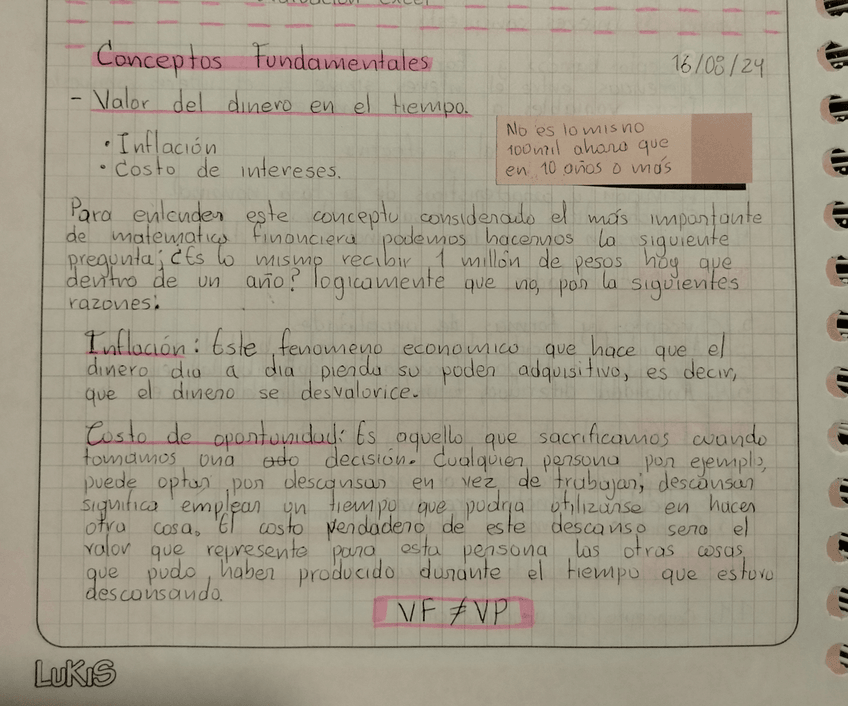 Conceptos Fundamentales
16/08/24
- Valor del dinero en el tiempo.
• Inflación
• Costo de intereses.
No es lo mismo
100mil ahora que
en 10 años o más
Para entender este concepto considerado el más importante
de matematica financiera podemos hacernos la siguiente
pregunta; ¿Es lo mismo recibir 1 millón de pesos hoy que
dentro de un año? logicamente que no, por la siguientes
razones:
Inflación: Este fenomeno economico que hace que el
dinero dia a dia pierda su poder adquisitivo, es decir,
que el dinero se desvalorice.
Costo de oportunidad: Es aquello que sacrificamos cuando
tomamos una decisión. Cualquier persona por ejemplo,
puede optar por descansar en vez de trabajar; descansar
significa emplear un tiempo que podria utilizarse en hacer
otra cosa. El costo verdadero de este descanso sera el
valor que represente para esta persona las otras cosas
que pudo haber producido durante el tiempo que estuvo
descansando.
VF ≠ VP
LUKIS